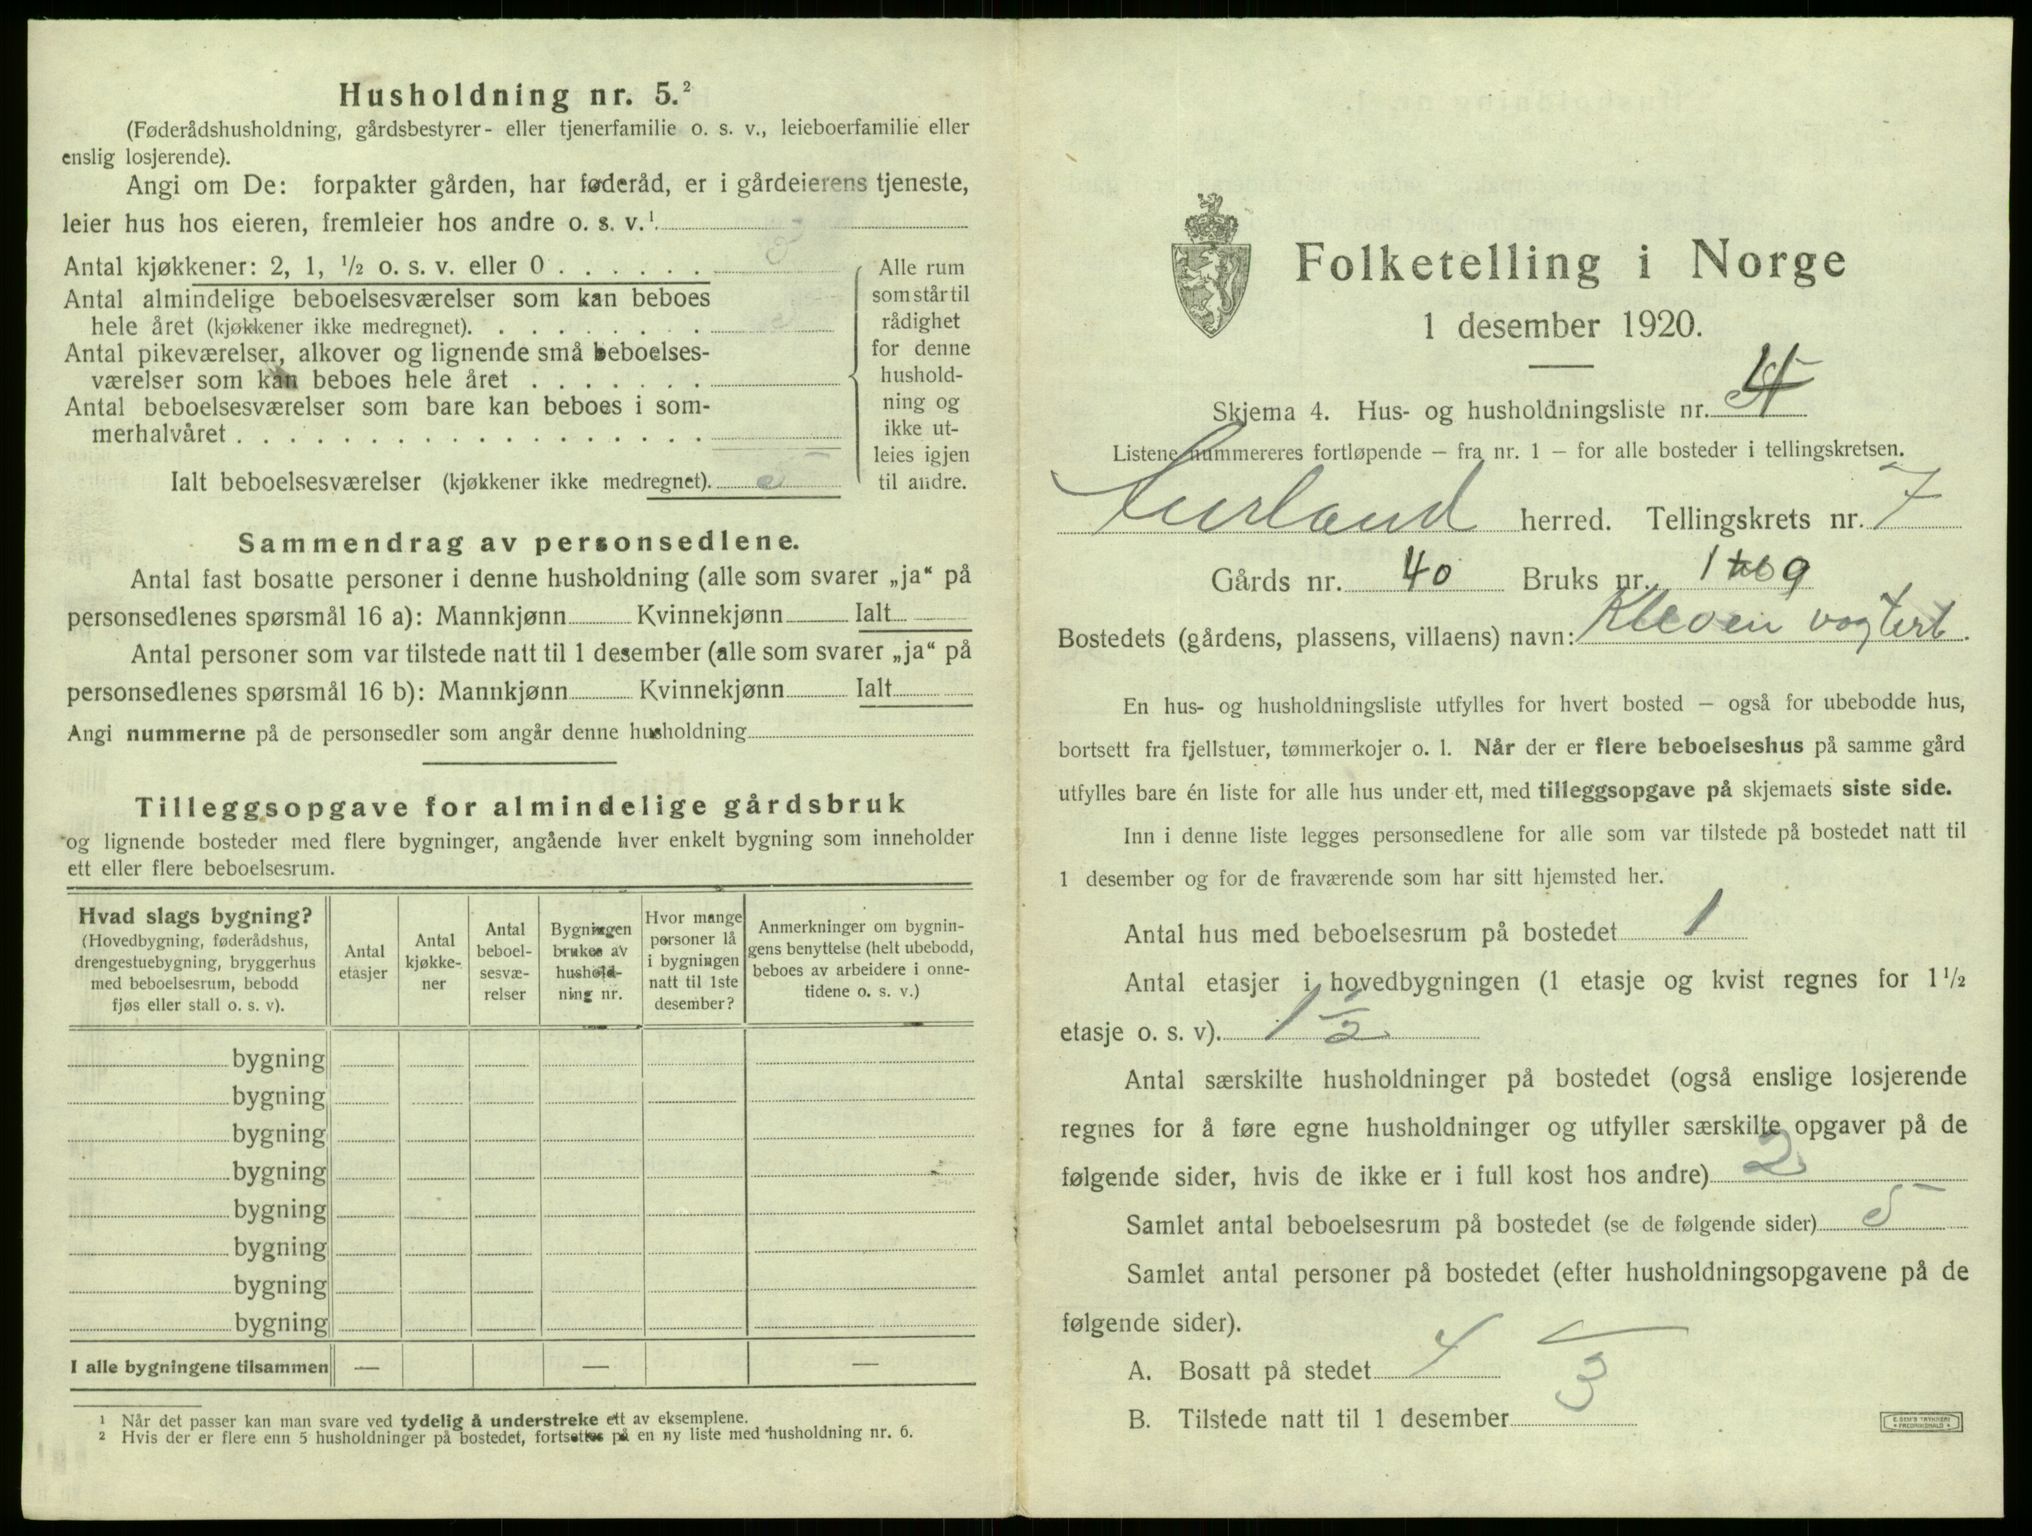 Husholdning nr. 5.²
(Føderådshusholdning, gårdsbestyrer- eller tjenerfamilie o. s. v., leieboerfamilie eller
enslig losjerende).
Angi om De: forpakter gården, har føderåd, er i gårdeierens tjeneste,
leier hus hos eieren, fremleier hos andre o. s. v.¹
Antal kjøkkener: 2, 1, ½ o. s. v. eller 0 . . . . . .
Antal almindelige beboelsesværelser som kan beboes
hele året (kjøkkener ikke medregnet). . . . . . . . .
Antal pikeværelser, alkover og lignende små beboelses-
værelser som kan beboes hele året . . . . . . .
Antal beboelsesværelser som bare kan beboes i som-
merhalvåret . . . . . . . . . . . . . . . . . .
Ialt beboelsesværelser (kjøkkener ikke medregnet).
Alle rum
som står til
rådighet
for denne
hushold-
ning og
ikke ut-
leies igjen
til andre.
Sammendrag av personsedlene.
Antal fast bosatte personer i denne husholdning (alle som svarer „ja“ på
personsedlenes spørsmål 16 a): Mannkjønn Kvinnekjønn Ialt
Antal personer som var tilstede natt til 1 desember (alle som svarer „ja“ på
personsedlenes spørsmål 16 b): Mannkjønn Kvinnekjønn Ialt
Angi nummerne på de personsedler som angår denne husholdning
Tilleggsopgave for almindelige gårdsbruk
og lignende bosteder med flere bygninger, angående hver enkelt bygning som inneholder
ett eller flere beboelsesrum.
Hvad slags bygning?
(Hovedbygning, føderådshus,
drengestuebygning, bryggerhus
med beboelsesrum, bebodd
fjøs eller stall o. s. v).
Antal
etasjer
Antal
kjøkke-
ner
Antal
beboel-
sesvæ-
relser
Bygningen
brukes av
hushold-
ning nr.
Hvor mange
personer lå
i bygningen
natt til 1ste
desember?
Anmerkninger om bygnin-
gens benyttelse (helt ubebodd,
beboes av arbeidere i onne-
tidene o. s. v.)
bygning
bygning
bygning
bygning
bygning
bygning
bygning
bygning
I alle bygningene tilsammen — — —
¹ Når det passer kan man svare ved tydelig å understreke ett av eksemplene.
² Hvis der er flere enn 5 husholdninger på bostedet, fortsettes på en ny liste med husholdning nr. 6.
Folketelling i Norge
1 desember 1920.
Skjema 4. Hus- og husholdningsliste nr.
Listene nummereres fortløpende – fra nr. 1 – for alle bosteder i tellingskretsen.
Aurland herred. Tellingskrets nr. 7
Gårds nr. 40 Bruks nr. 1 9
Bostedets (gårdens, plassens, villaens) navn: Kleven
En hus- og husholdningsliste utfylles for hvert bosted – også for ubebodde hus,
bortsett fra fjellstuer, tømmerkojer o. l. Når der er flere beboelseshus på samme gård
utfylles bare én liste for alle hus under ett, med tilleggsopgave på skjemaets siste side.
Inn i denne liste legges personsedlene for alle som var tilstede på bostedet natt til
1 desember og for de fraværende som har sitt hjemsted her.
Antal hus med beboelsesrum på bostedet 1
Antal etasjer i hovedbygningen (1 etasje og kvist regnes for 1 ½
etasje o. s. v). 1 ½
Antal særskilte husholdninger på bostedet (også enslige losjerende
regnes for å føre egne husholdninger og utfyller særskilte opgaver på de
følgende sider, hvis de ikke er i full kost hos andre) 2
Samlet antal beboelsesrum på bostedet (se de følgende sider) 5
Samlet antal personer på bostedet (efter husholdningsopgavene på de
følgende sider).
A. Bosatt på stedet 4
B. Tilstede natt til 1 desember 3